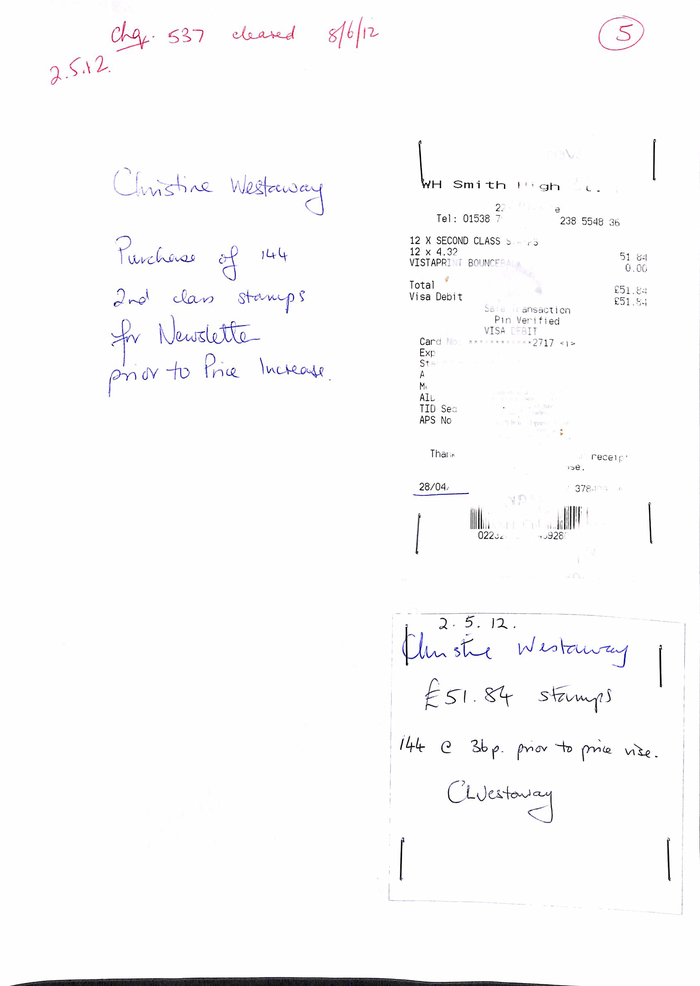 Chq. 537 cleared 8/6/12
5
2.5.12.
Christine Westaway
Purchase of 144
2nd class stamps
for Newsletter
prior to Price Increase.
WH Smith High
Tel: 01538 7 238 5548 36
12 X SECOND CLASS
12 x 4.32 51.84
VISTAPRINT BOUNCE 0.00
Total £51.84
Visa Debit £51.84
Sale Transaction
Pin Verified
VISA DEBIT
Card No ************2717 <1>
Exp
A
AID
TID Seq
APS No
Thank receipt
28/04 378
2.5.12.
Christine Westaway
£51.84 stamps
144 @ 36p. prior to price rise.
CWestaway